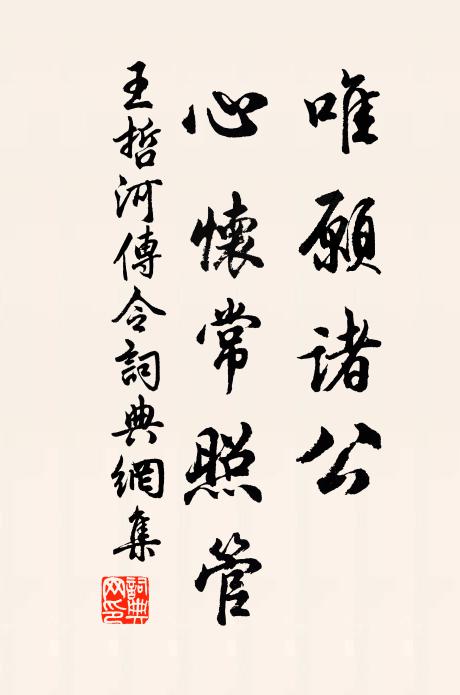 唯願諸公
心懷常照管
王哲河傳令詞典網集
詞典
网印